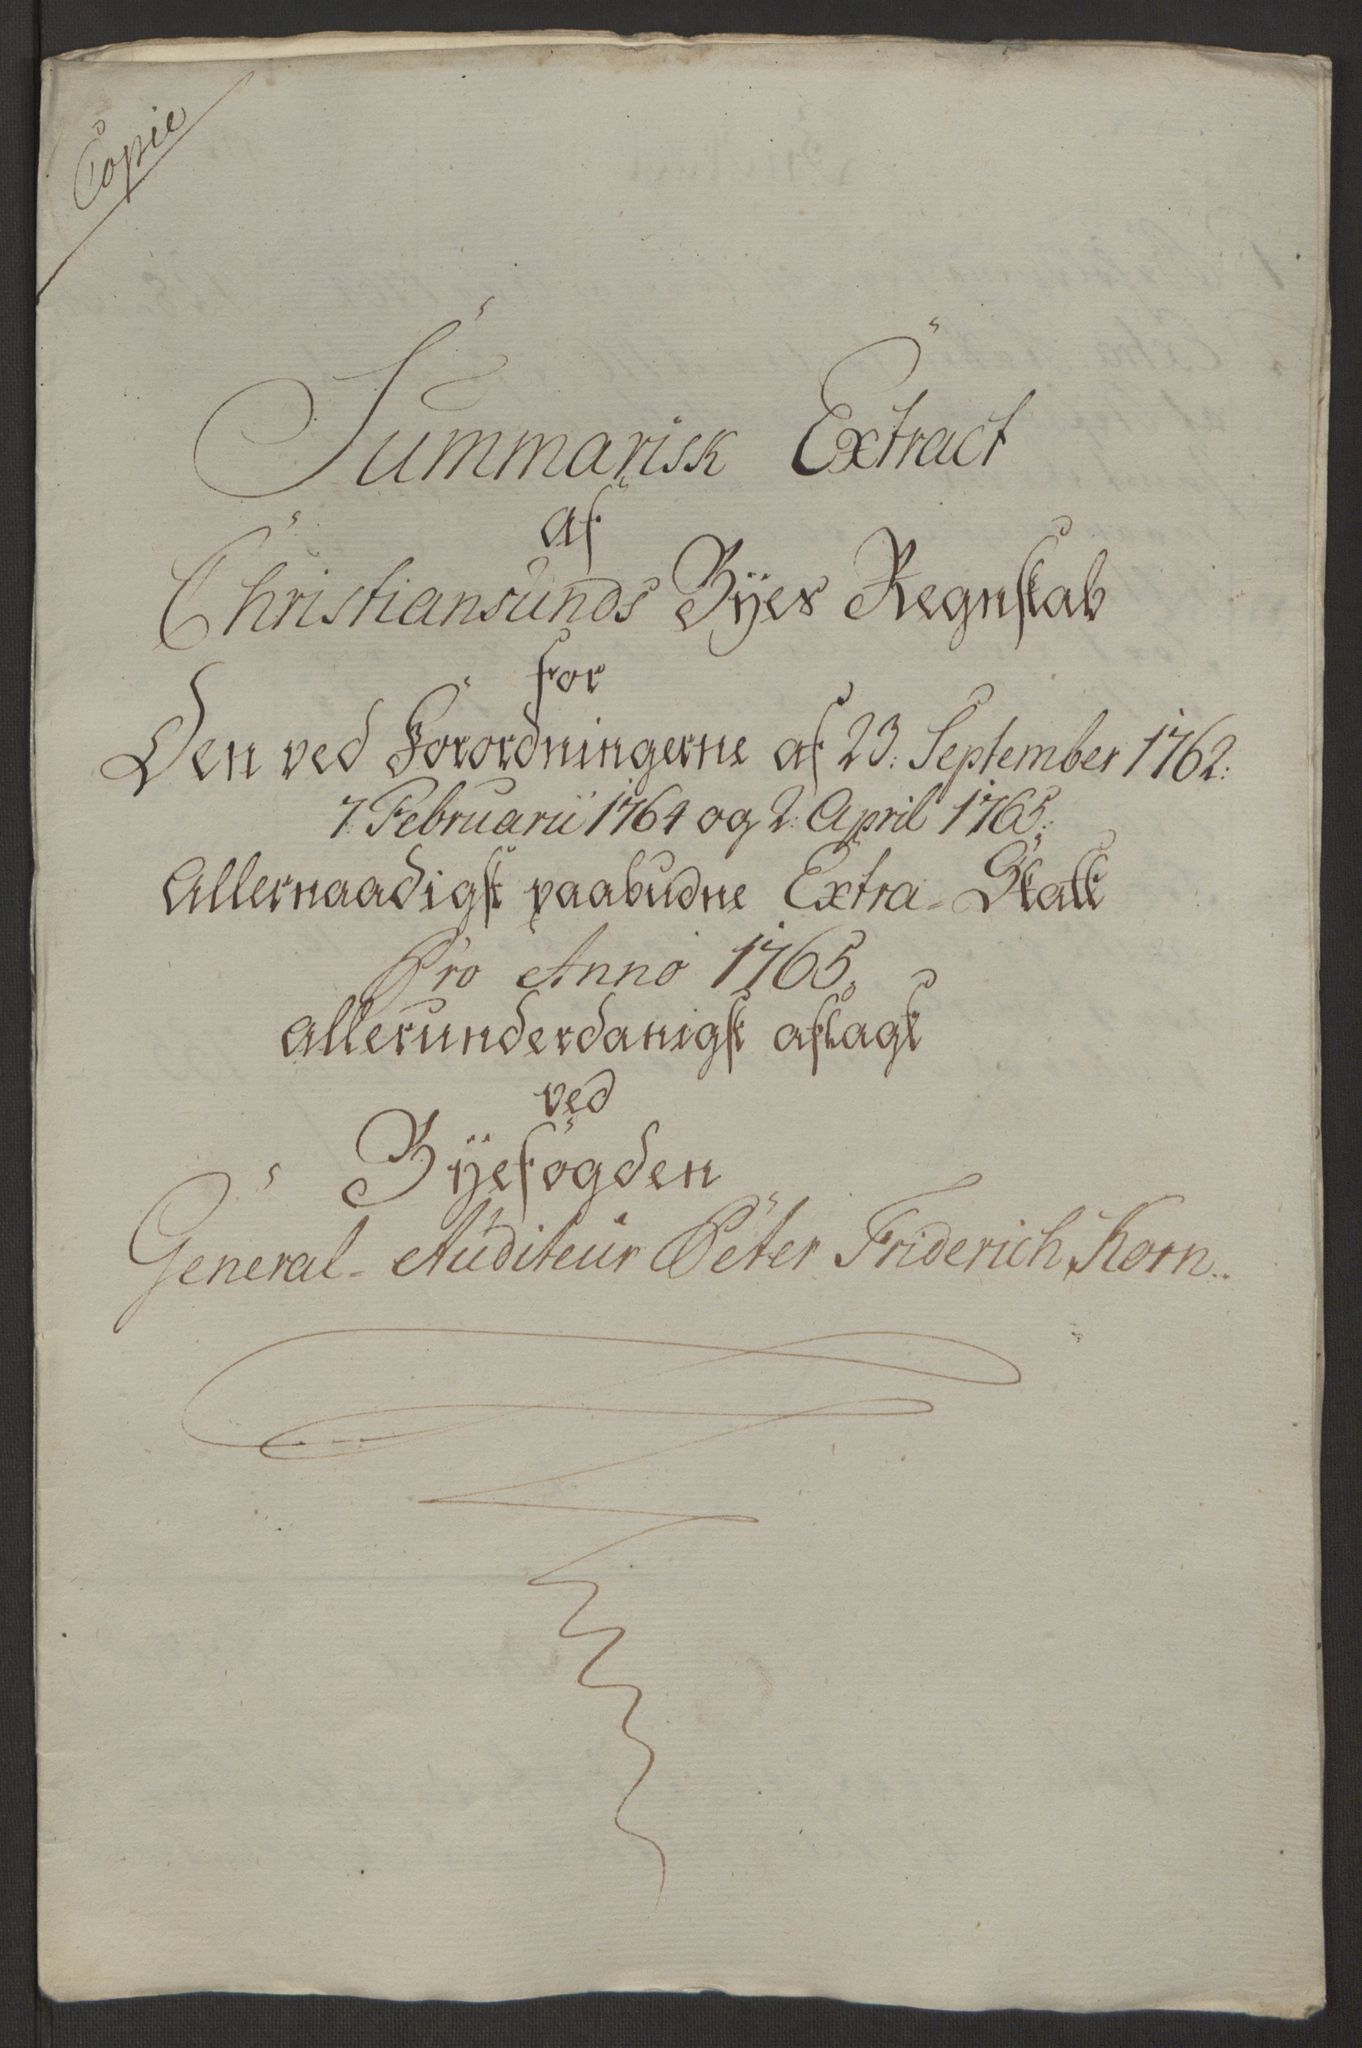 Copie
Summarisk Extract
af
Christiansunds Byes Regnskab
for
Den ved Forordningerne af 23. September 1762:
7. Februarii 1764 og 2. April 1765:
Allernaadigst paabudne Extra-Skatt
Pro Anno 1765.
allerunderdanigst aflagt
ved
Byefogden
General-Auditeur Peter Friderich Korn..